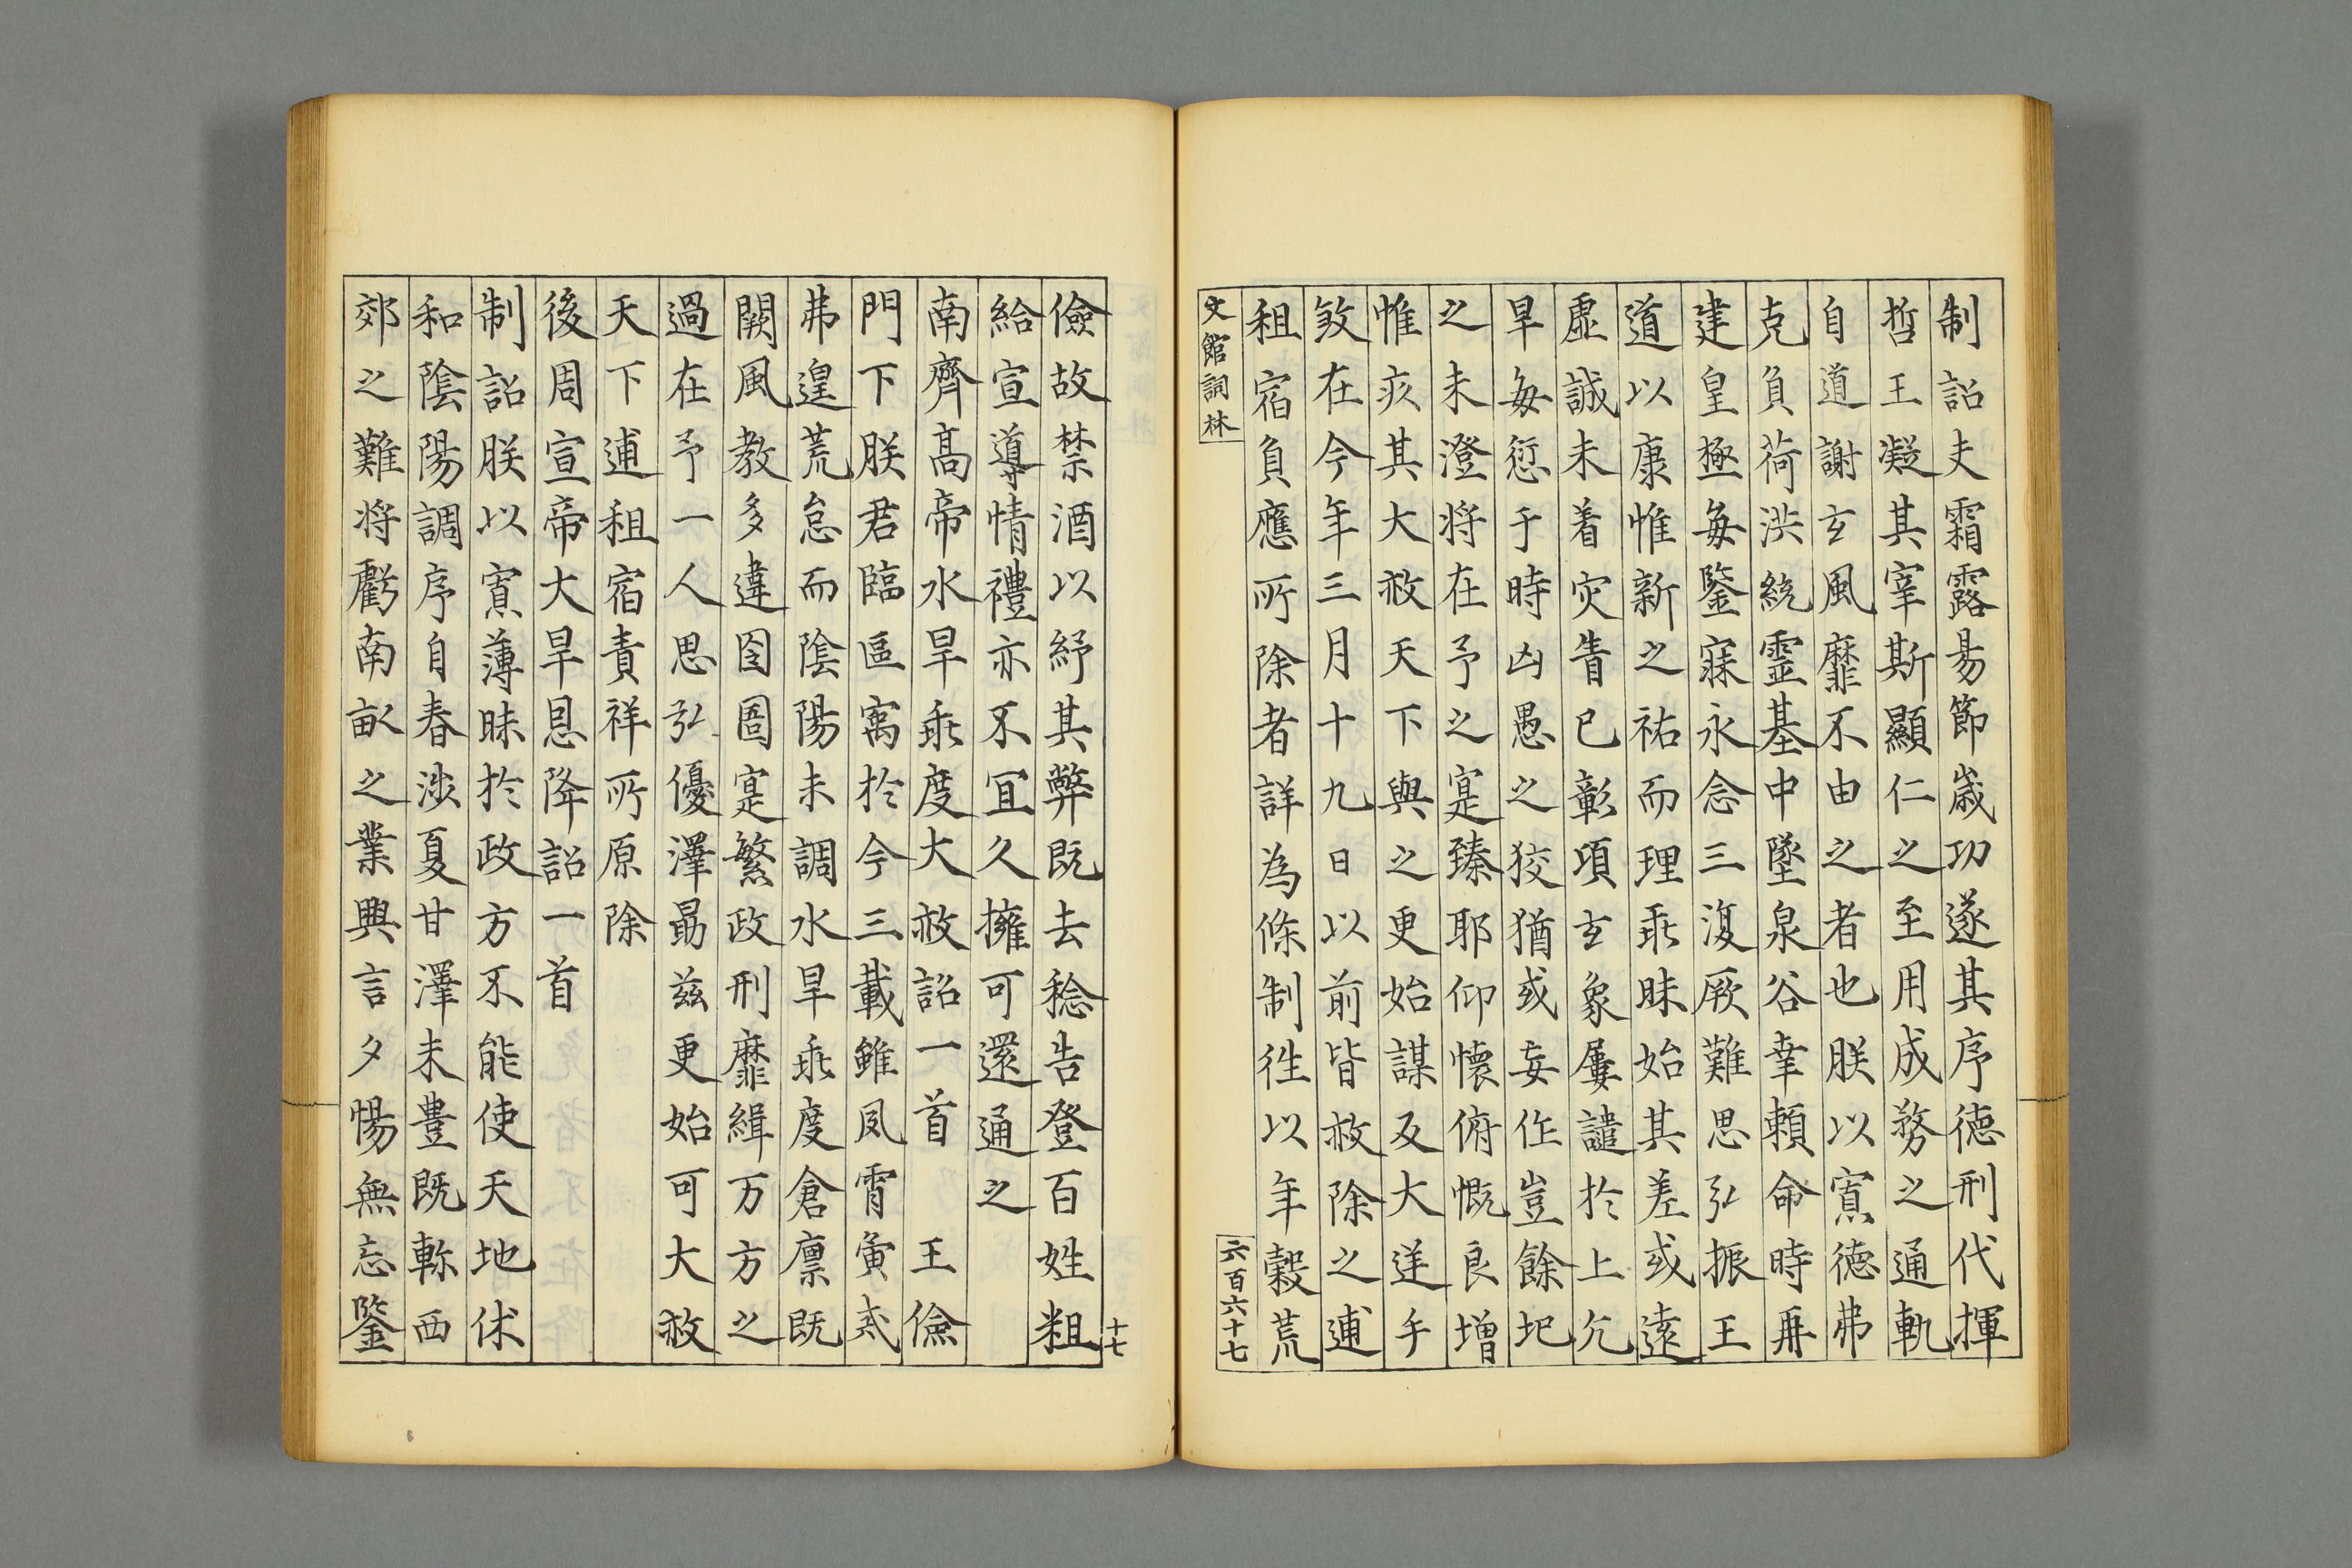 制詔夫霜露昜節歳功遂其序徳刑代揮
哲王凝其宰斯顯仁之至用成務之通軌
自道謝玄風靡不由之者也朕以寡徳弗
克負荷洪統霊基中墜泉谷幸頼命時再
建皇極毎鑒寐永念三復厥難思弘振王
道以康惟新之祐而理乖昧始其差或遠
虚誠未着灾眚已彰項玄象屡譴於上亢
旱毎愆于時凶愚之狡猶或妄作豈餘圯
之未澄将在予之寔臻耶仰懐俯慨良増
惟疚其大赦天下與之更始謀反大逆手
煞在今年三月十九日以前皆赦除之逋
租宿負應所除者詳為條制徃以年穀荒
文館詞林
六百六十七
十七
儉故禁酒以紓其弊既去稔告登百姓粗
給宣導情禮亦不冝久擁可還通之
南齊髙帝水旱乖度大赦詔一首 王儉
門下朕君臨區寓於今三載雖夙宵夤忒
弗遑荒怠而陰陽未調水旱乖度倉廪既
闕風教多違囹圄寔繁政刑靡緝万方之
過在予一人思弘優澤勗兹更始可大赦
天下逋租宿責祥所原除
後周宣帝大旱恩降詔一首
制詔朕以寡薄昧於政方不能使天地休
和陰陽調序自春渉夏甘澤未豊既軫西
郊之難将虧南畝之業興言夕惕無忘鑒